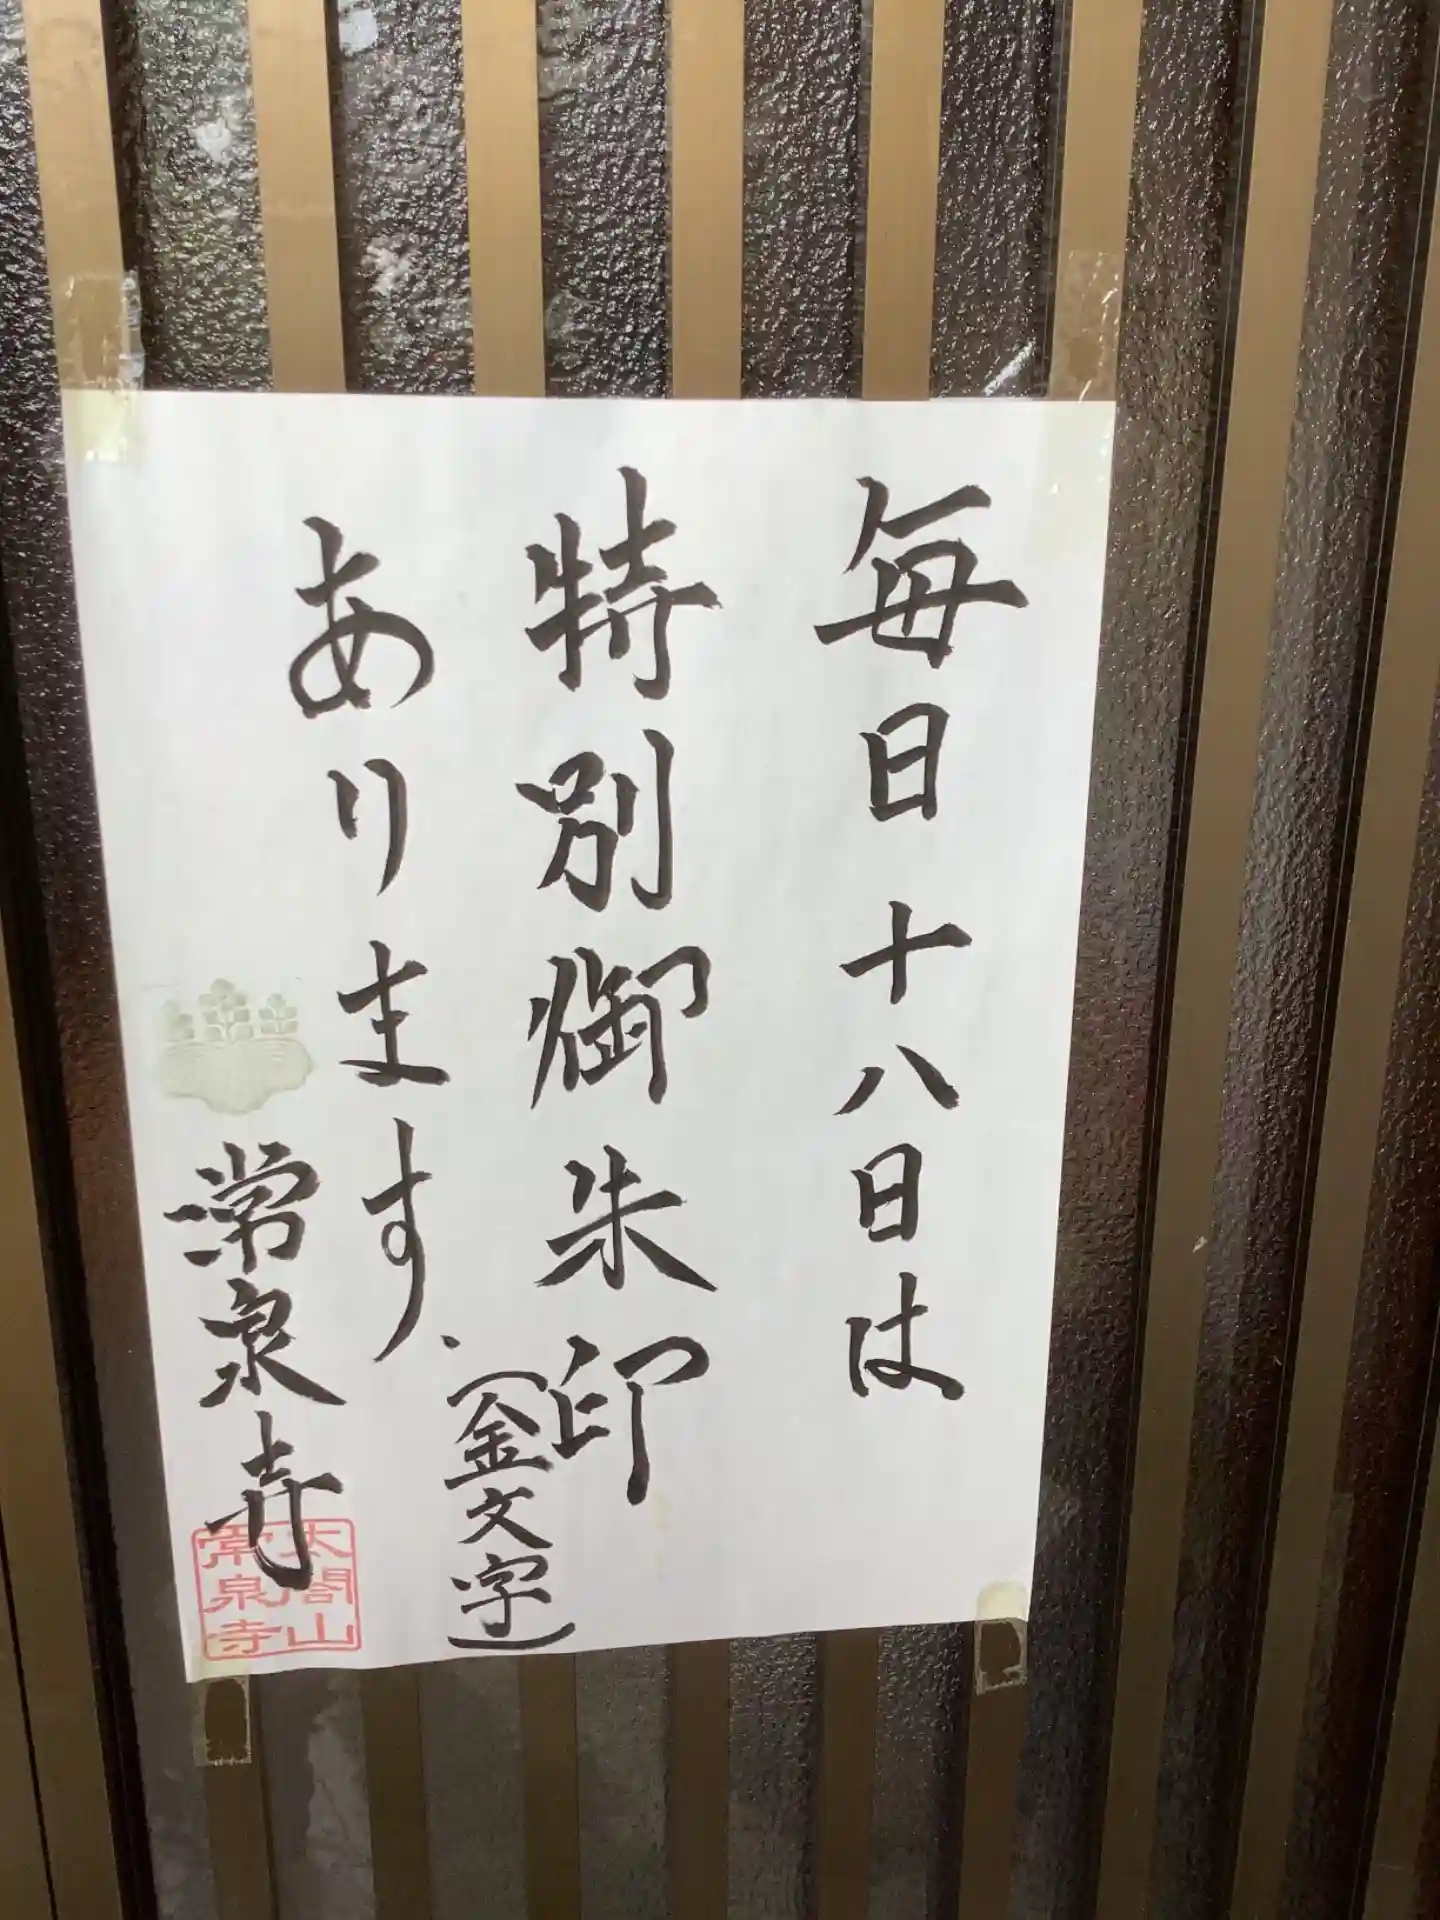 毎日十八日は
特別御朱印
(金文字)
あります.
常泉寺
太閤山
常泉寺